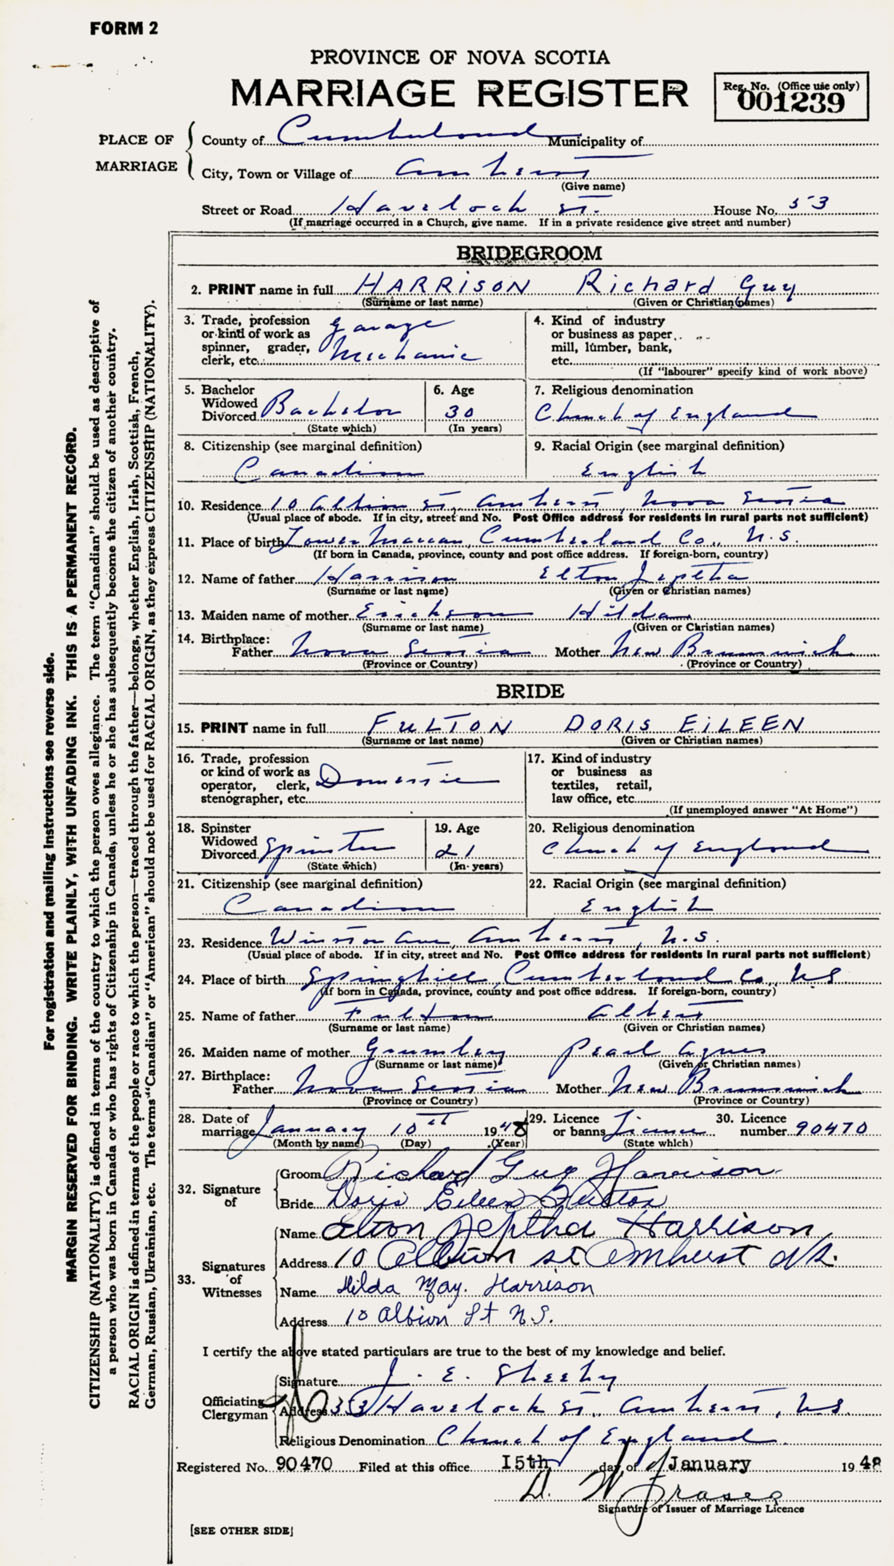 FORM 2
PROVINCE OF NOVA SCOTIA
MARRIAGE REGISTER
Reg. No. (Office use only)
001239
PLACE OF MARRIAGE
County of Cumberland Municipality of
City, Town or Village of Amherst
(Give name)
Street or Road Havelock St. House No. 53
(If marriage occurred in a Church, give name. If in a private residence give street and number)
BRIDEGROOM
2. PRINT name in full HARRISON Richard Guy
(Surname or last name) (Given or Christian names)
3. Trade, profession or kind of work as spinner, grader, clerk, etc. garage Mechanic
4. Kind of industry or business as paper mill, lumber, bank, etc.
(If "labourer" specify kind of work above)
5. Bachelor Widowed Divorced Bachelor
(State which)
6. Age 30
(In years)
7. Religious denomination
Church of England
8. Citizenship (see marginal definition)
Canadian
9. Racial Origin (see marginal definition)
English
10. Residence 10 Albion St, Amherst, Nova Scotia
(Usual place of abode. If in city, street and No. Post Office address for residents in rural parts not sufficient)
11. Place of birth Lower Maccan, Cumberland Co., N.S.
(If born in Canada, province, county and post office address. If foreign-born, country)
12. Name of father Harrison Elton Jeptha
(Surname or last name) (Given or Christian names)
13. Maiden name of mother Erickson Hilda
(Surname or last name) (Given or Christian names)
14. Birthplace:
Father Nova Scotia Mother New Brunswick
(Province or Country) (Province or Country)
BRIDE
15. PRINT name in full FULTON DORIS EILEEN
(Surname or last name) (Given or Christian names)
16. Trade, profession or kind of work as operator, clerk, stenographer, etc. Domestic
17. Kind of industry or business as textiles, retail, law office, etc.
(If unemployed answer "At Home")
18. Spinster Widowed Divorced Spinster
(State which)
19. Age
21
(In years)
20. Religious denomination
Church of England
21. Citizenship (see marginal definition)
Canadian
22. Racial Origin (see marginal definition)
English
23. Residence Winston Ave, Amherst, N.S.
(Usual place of abode. If in city, street and No. Post Office address for residents in rural parts not sufficient)
24. Place of birth Springhill, Cumberland Co., NS
(If born in Canada, province, county and post office address. If foreign-born, country)
25. Name of father Fulton Albert
(Surname or last name) (Given or Christian names)
26. Maiden name of mother Pearl Agnes
(Surname or last name) (Given or Christian names)
27. Birthplace:
Father Nova Scotia Mother New Brunswick
(Province or Country) (Province or Country)
28. Date of marriage January 10th 1948
(Month by name) (Day) (Year)
29. Licence or banns License
(State which)
30. Licence number 90470
32. Signature of
Groom Richard Guy Harrison
Bride Doris Eileen Fulton
33. Signatures of Witnesses
Name Elton Jeptha Harrison
Address 10 Albion st Amherst N.S.
Name Hilda May. Harrison
Address 10 Albion St N.S.
I certify the above stated particulars are true to the best of my knowledge and belief.
Officiating Clergyman
Signature J. E. Sheehy
Address 33 Havelock St., Amherst, N.S.
Religious Denomination Church of England
Registered No. 90470 Filed at this office 15th day of January 1948
D. W. Fraser
Signature of Issuer of Marriage Licence
[SEE OTHER SIDE]
For registration and mailing instructions see reverse side.
MARGIN RESERVED FOR BINDING. WRITE PLAINLY, WITH UNFADING INK. THIS IS A PERMANENT RECORD.
CITIZENSHIP (NATIONALITY) is defined in terms of the country to which the person owes allegiance. The term "Canadian" should be used as descriptive of
a person who was born in Canada or who has rights of Citizenship in Canada, unless he or she has subsequently become the citizen of another country.
RACIAL ORIGIN is defined in terms of the people or race to which the person—traced through the father—belongs, whether English, Irish, Scottish, French,
German, Russian, Ukrainian, etc. The terms "Canadian" or "American" should not be used for RACIAL ORIGIN, as they express CITIZENSHIP (NATIONALITY).